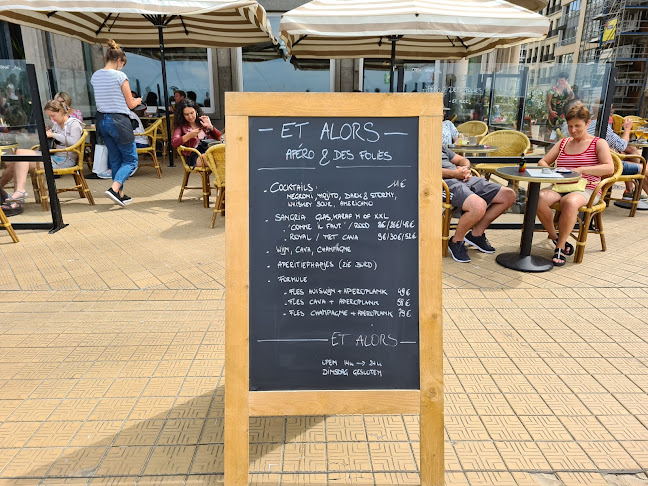 ET ALORS
APÉRO & DES FOLIES
- COCKTAILS : 11€
NEGRONI, MOJITO, DARK & STORMY,
WHISKEY SOUR, AMERICANO
- SANGRIA GLAS, KARAF M OF XXL
- 'COMME IL FAUT' / ROOD 8€/26€/48€
- ROYAL / MET CAVA 9€/30€/52€
- WIJN, CAVA, CHAMPAGNE
- APERITIEFHAPJES (ZIE BORD)
- FORMULE
- FLES HUISWIJN + APEROPLANK 49€
- FLES CAVA + APEROPLANK 58€
- FLES CHAMPAGNE + APEROPLANK 79€
ET ALORS
OPEN 14u → 24u
DINSDAG GESLOTEN